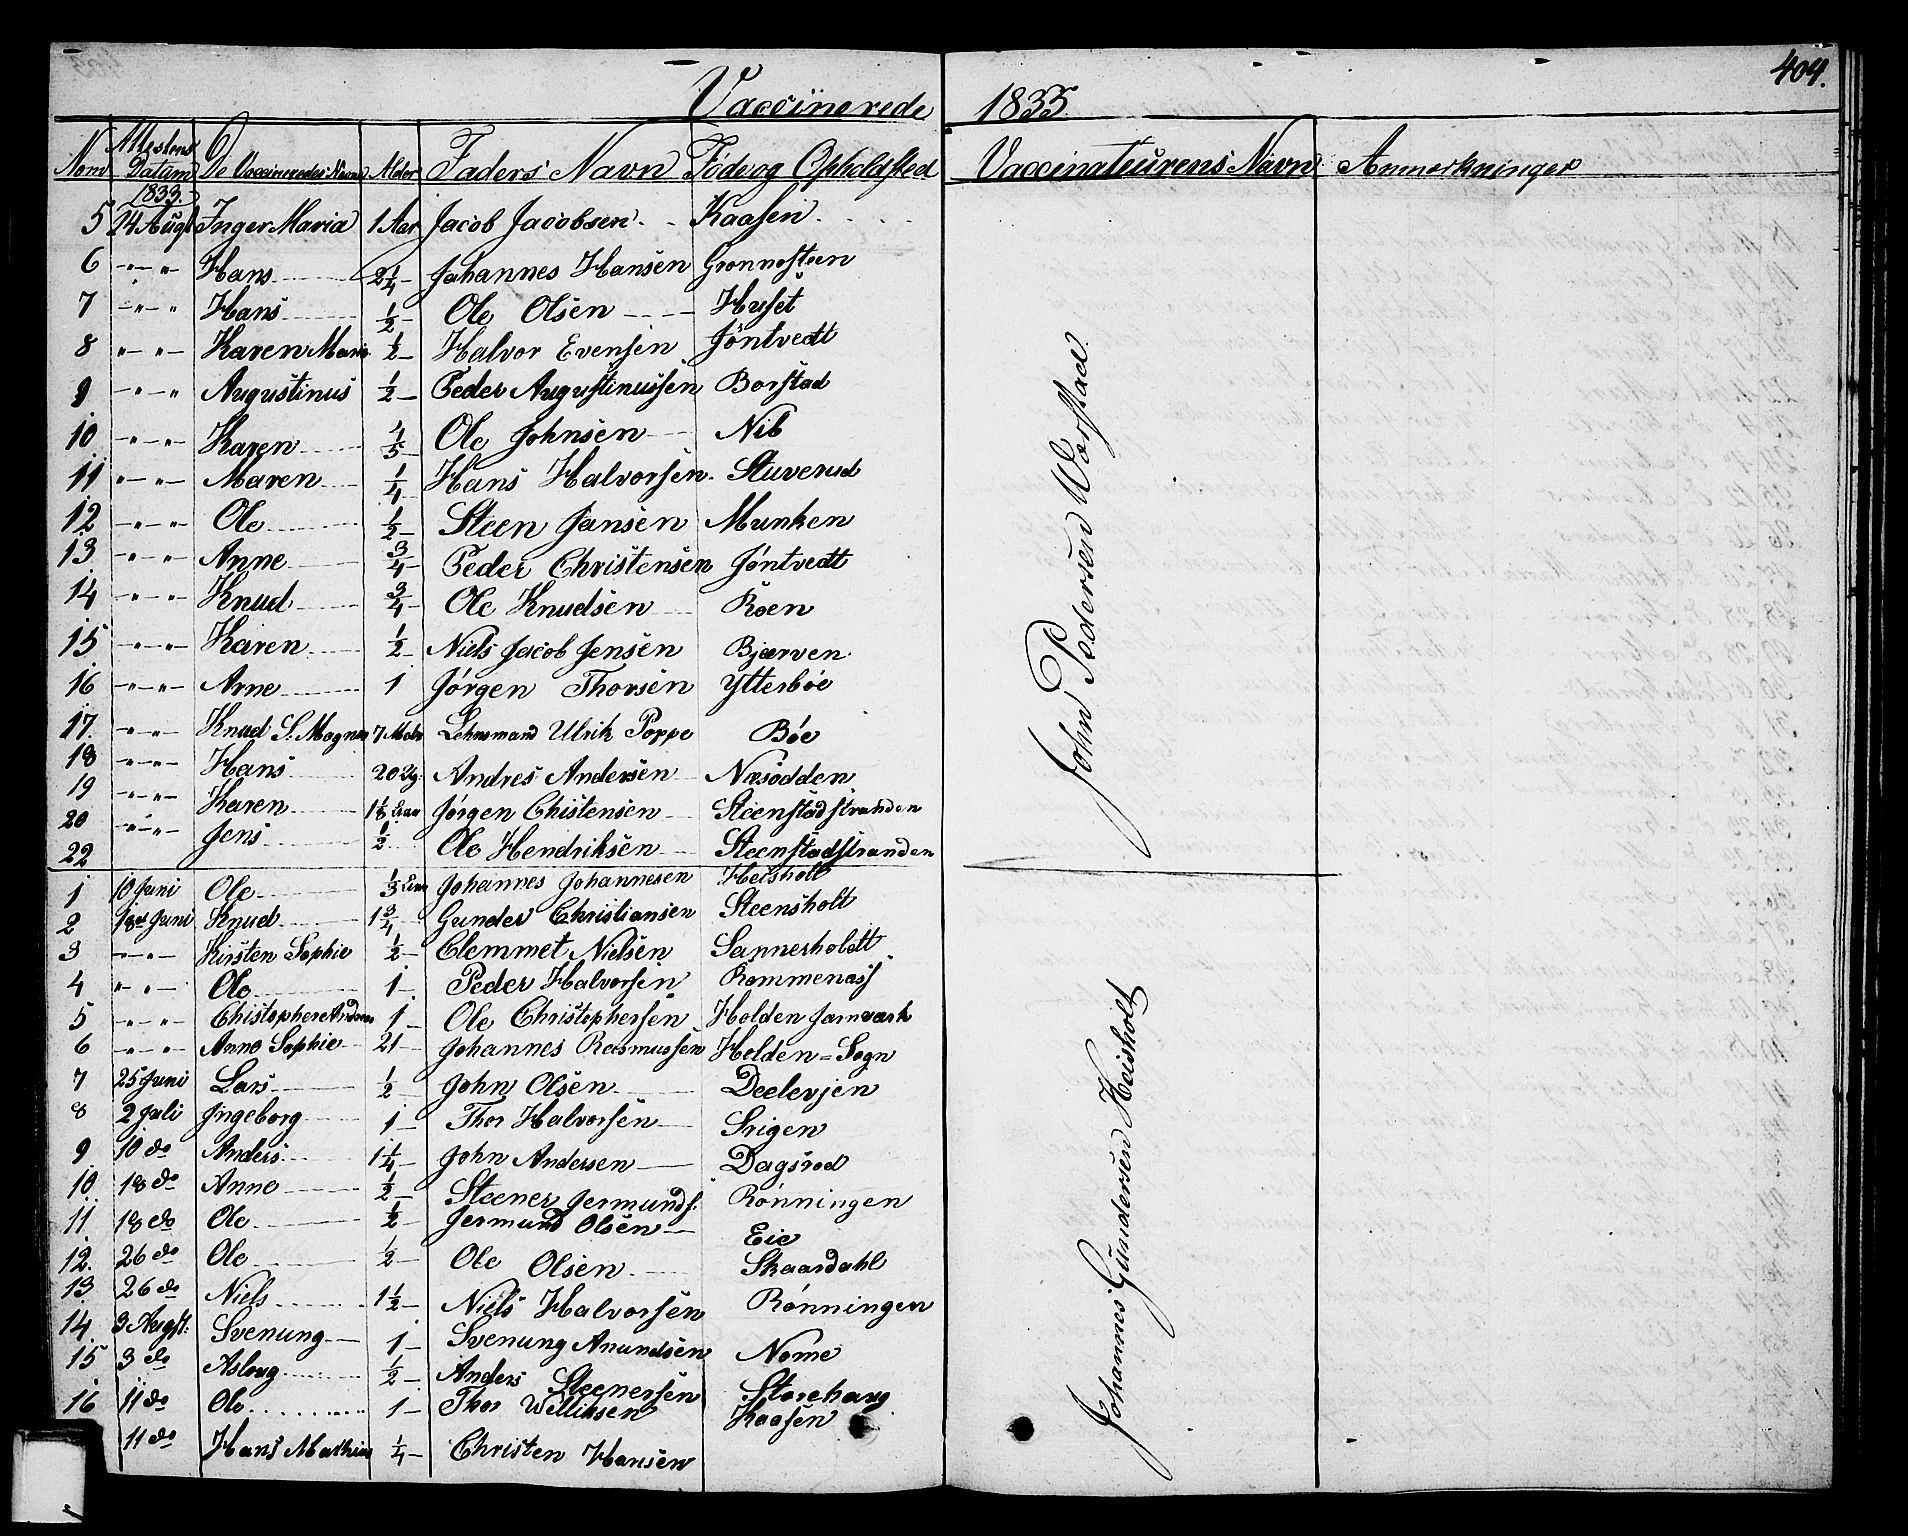 404.
Vaccinerede 1835.
Nom Attestens Datum De Vaccineredes Navne Alder Faders Navn Føde og Opholdsted Vaccinateurens Navn Anmerkninger
1833.
5 24 Augt Inger Maria 1 Aar Jacob Jacobsen Kaasen
6 -"-"- Hans 2 1/4 Johannes Hansen Grønnesteen
7 -"-"- Hans 1/2 Ole Olsen Huset
8 -"-"- Karen Marie 1/2 Halvor Evensen Jöntvedt
9 -"-"- Augustinus 1/2 Peder Augustinussen Borstad
10 -"-"- Karen 4/5 Ole Johnsen Nib
11 -"-"- Maren 1/4 Hans Halvorsen Stuverud
12 -"-"- Ole 1/2 Steen Jansen Munken
13. -"-"- Anne 3/4 Peder Christensen Jöntvedt
14 -"-"- Knud 3/4 Ole Knudsen Röen
15 -"-"- Karen 1/2 Niels Jacob Jensen Bjærven
16 -"-"- Arne 1 Jörgen Thorsen Ytterböe
17. -"-"- Knud S. Magnus 7 Mdr Lehnsmand Ulrik Poppe Böe
18 -"-"- Hans 20 Andres Andersen Næsodden
19 -"-"- Karen 1 1/8 Jörgen Chistensen Steenstadstranden
20 -"-"- Jens 1/2 Ole Hendriksen Steenstadstranden
22
John Pedersen Wærstad.
1 10 Juni Ole 1/3 Johannes Johannesen Heisholt
2 18de Juni Knud 1 3/4 Gunder Christiansen Steensholt
3 -"-"- Kirsten Sophie 1/2 Clemmet Nielsen Sannerholdt
4 -"-"- Ole 1 Peder Halvorsen Rommenæss
5 -"-"- Chistophere Andreas 1 Ole Christophersen Holden Jarnværk
6 -"-"- Anne Sophie 21 Johannes Rasmussen Holden=Sogn
7 25 Juni Lars 1/2 John Olsen Deelevjen
8 2 Juli Ingeborg 1 Thor Halvorsen Srigen
9 10 do Anders 1 1/4 John Andersen Dagsrod
10 18 do Anne 1/2 Steener Jermunds. Rönningen
11. 18 do Ole 1/2 Jermund Olsen Eie
12. 26 do Ole 1/2 Ole Olsen Skaardahl
13 26 do Niels 1 1/2 Niels Halvorsen Rönningen
14 3 Augst: Svenung 1 Svenung Anundsen Nome
15 3 do Aslaug 1/2 Anders Steenersen Storehaug
16 11 do Ole 1 Thor Welliksen Kaasen
11 do Hans Mathias 1/4 Christen Hansen
Johannes Gundersen Heisholt